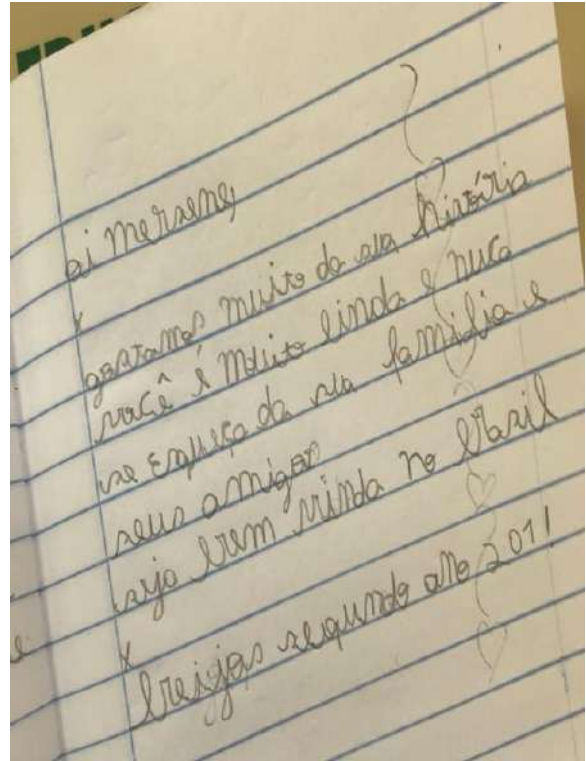 oi mersene,
gostamos muito da sua história
você é muito linda e nuca
se esqueça da sua família e
seus amigos
seja bem vinda no Brasil
breijos segundo ano 2011